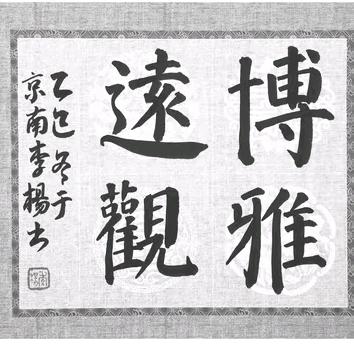 博雅
遠觀
乙巳冬于
京南李楊书